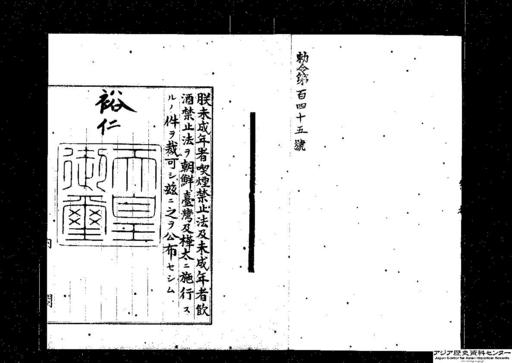 勅令第百四十五號
朕未成年者喫煙禁止法及未成年者飮
酒禁止法ヲ朝鮮臺灣及樺太ニ施行ス
ルノ件ヲ裁可シ玆ニ之ヲ公布セシム
裕仁
天皇
御璽
内閣
アジア歴史資料センター
Japan Center for Asian Historical Records